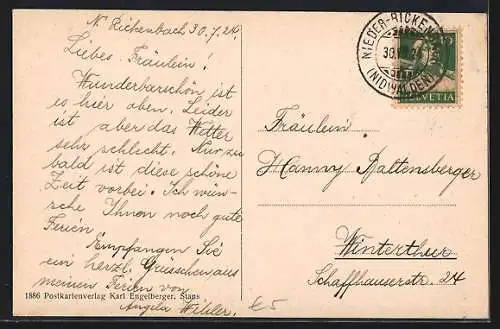 N. Rickenbach 30.7.24.
Liebes Fräulein!
Wunderbarschön ist
es hier oben. Leider
ist aber das Wetter
sehr schlecht. Nur zu
bald ist diese schöne
Zeit vorbei. Ich wün-
sche Ihnen noch gute
Ferien.
Empfangen Sie
ein herzl. Grüsschen aus
meinen Ferien von
Angela
1886 Postkartenverlag Karl Engelberger, Stans
£5
NIEDER-RICKENB
30.VII
(NIDWALDEN)
HELVETIA
Fräulein
Hanny Rattensberger
Winterthur
Schaffhauserstr. 24